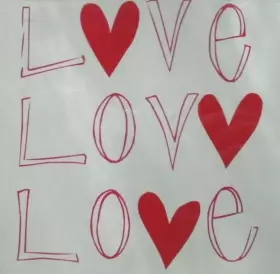 L♥ve
Lov♥
Lo♥e